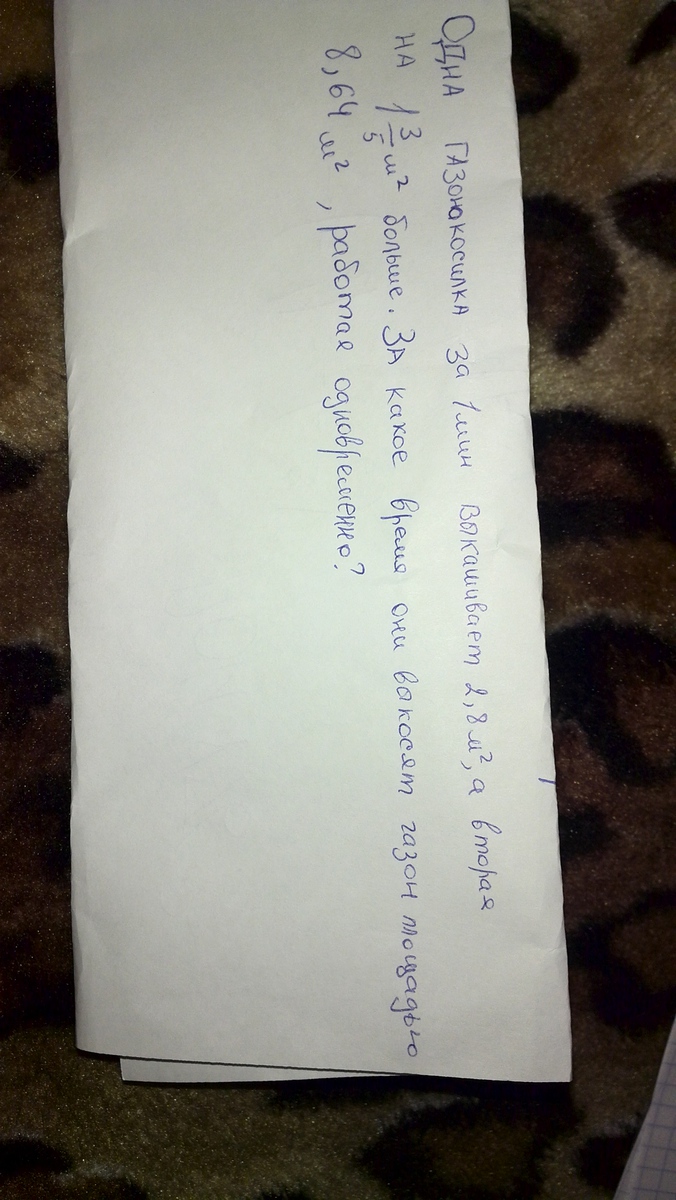 ОДНА ГАЗОНАКОСИЛКА За 1 мин Выкашивает 2,8 м², а вторая
НА 1 3/5 м² больше. ЗА какое время они выкосят газон площадью
8,64 м², работая одновременно?